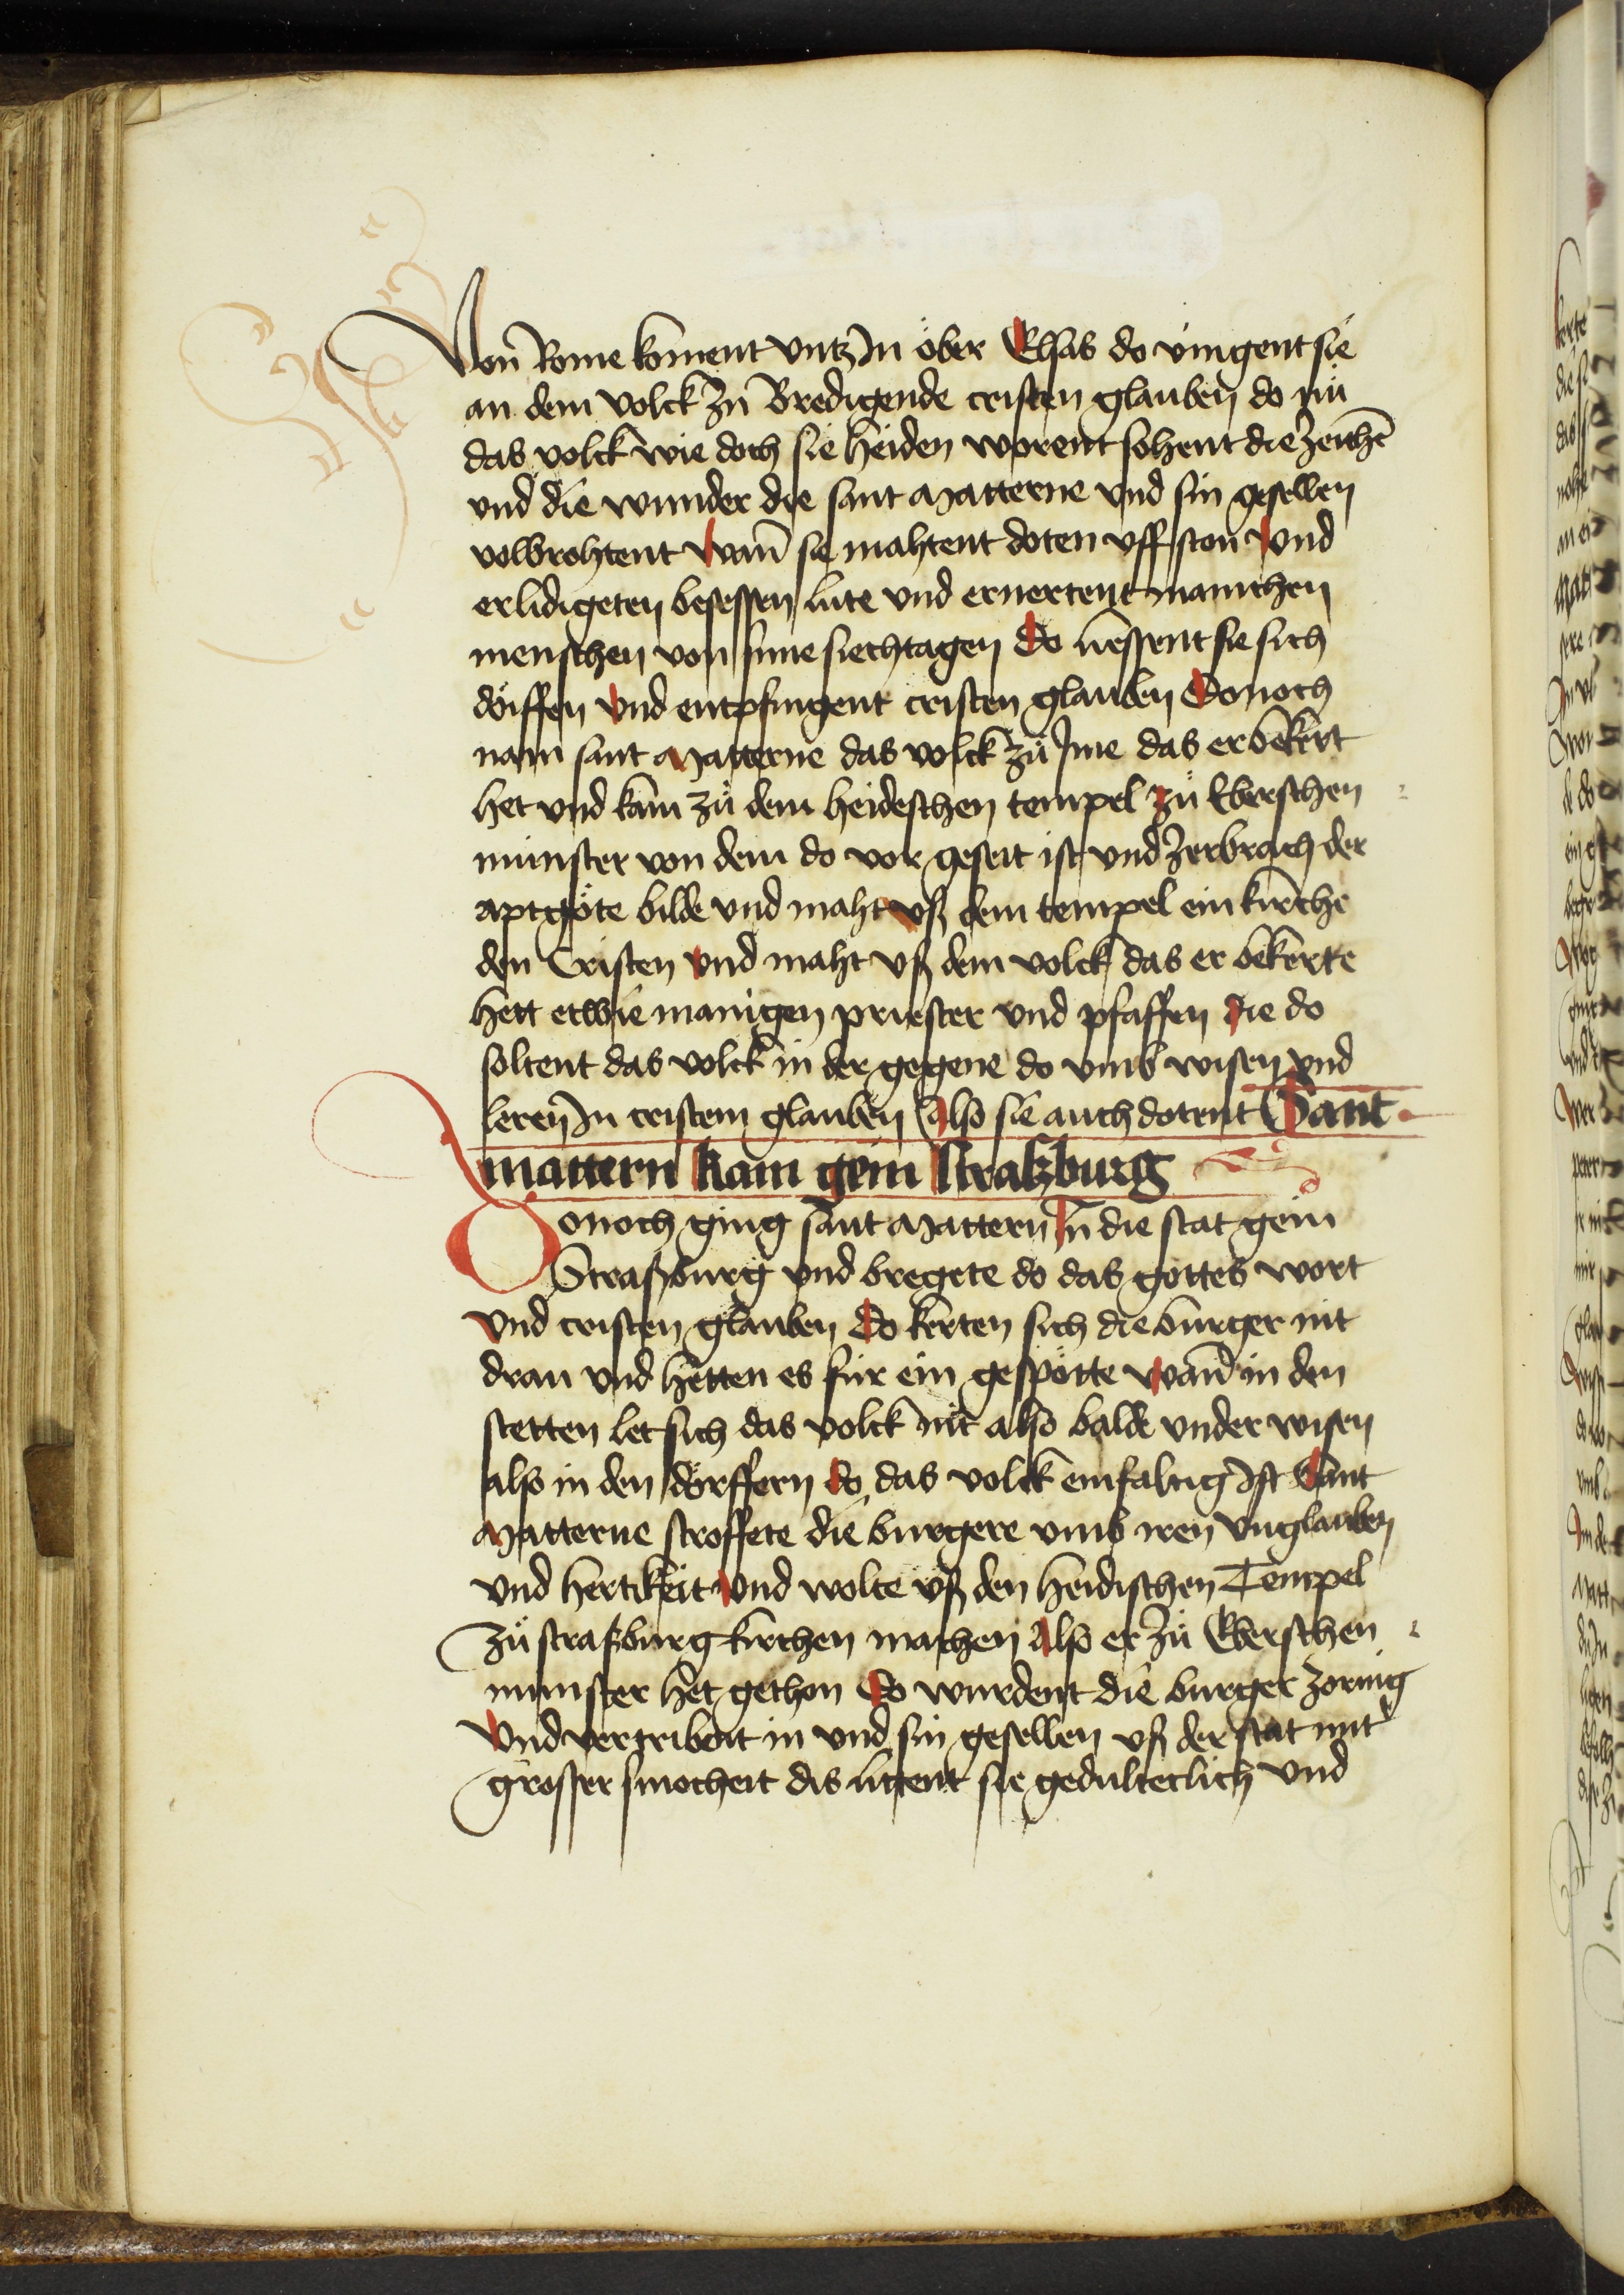 Von Rome koment vntz Jn ober Elsas do vingent sie
an dem volck zu Bredigende cristen glauben do nů
das volck wie doch sie heiden worent sohent die zeichē
vnd die wunder die sant Matterne vnd sin gesellen
volbrohtent wan̄ sie mahtent doten vff ston vnd
erlidigeten besessen lute vnd ernertent manichen
menschen von sime siechtagen Do liessent sie sich
döiffen vnd entpfingent cristen glauben Donoch
nam sant Matterne das volck zů Jme das er bekert
het vnd kam zů dem heideschen tempel zů Eberschen
munster von dem do vor geseit ist vnd zerbrach der
aptgöte bilde vnd maht vß dem tempel ein kirche
den Cristen vnd maht vß dem volck das er bekerte
hett etwie manigen priester vnd pfaffen die do
soltent das volck in der gegene do vmb wisen vnd
leren Jn cristem glauben Also sie auch dotent Sant
mattern kam gein straßburg
Donoch ging sant Mattern Jn die stat gein
Straßburg vnd bregete do das gottes wort
vnd cristen glauben Do kerten sich die burger nit
dran vnd hetten es für ein gespötte wan̄ in den
stetten let sich das volck nit also balde vnder wisen
also in den dörffern do das volck einfaltig Jst Sant
Matterne stroffete die burgere vmb iren vnglauben
vnd hertikeit vnd wolte vß den heidischen Tempel
zů straßburg kirchen machen Also er zů Eberschen
munster het gethon Do wurdent die burger zornig
vnd vertribent in vnd sin gesellen vß der stat mit
grosser smocheit dis littent sie gedulteclich vnd